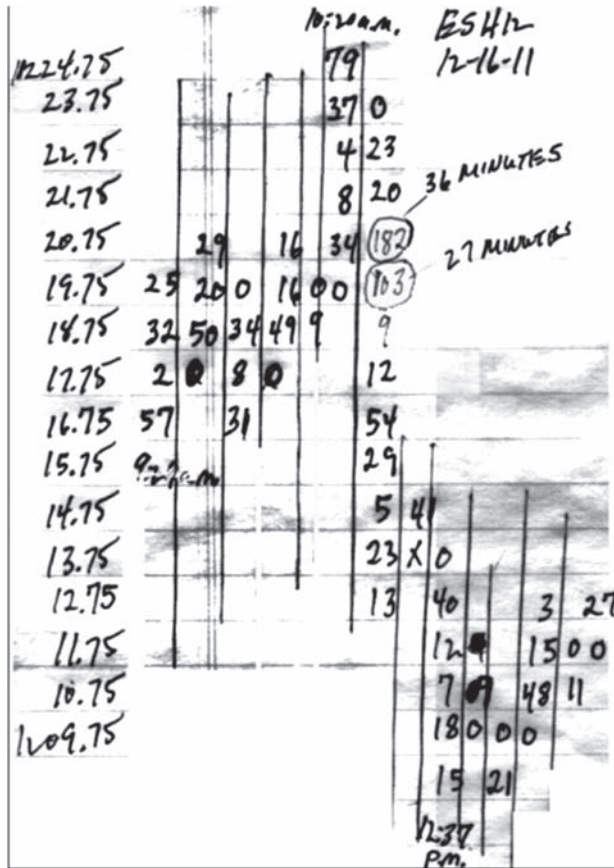 10:20 a.m. ESH12
12-16-11
1224.75 79
23.75 37 0
22.75 4 23
36 MINUTES
21.75 8 20
20.75 29 16 34 182
27 MINUTES
19.75 25 20 0 16 0 0 103
18.75 32 50 34 49 9 9
17.75 2 0 8 0 12
16.75 57 31 54
15.75 a.m. 29
14.75 5 41
13.75 23 X 0
12.75 13 40 3 27
11.75 12 15 0 0
10.75 7 48 11
1209.75 18 0 0 0
15 21
12:37
P.M.